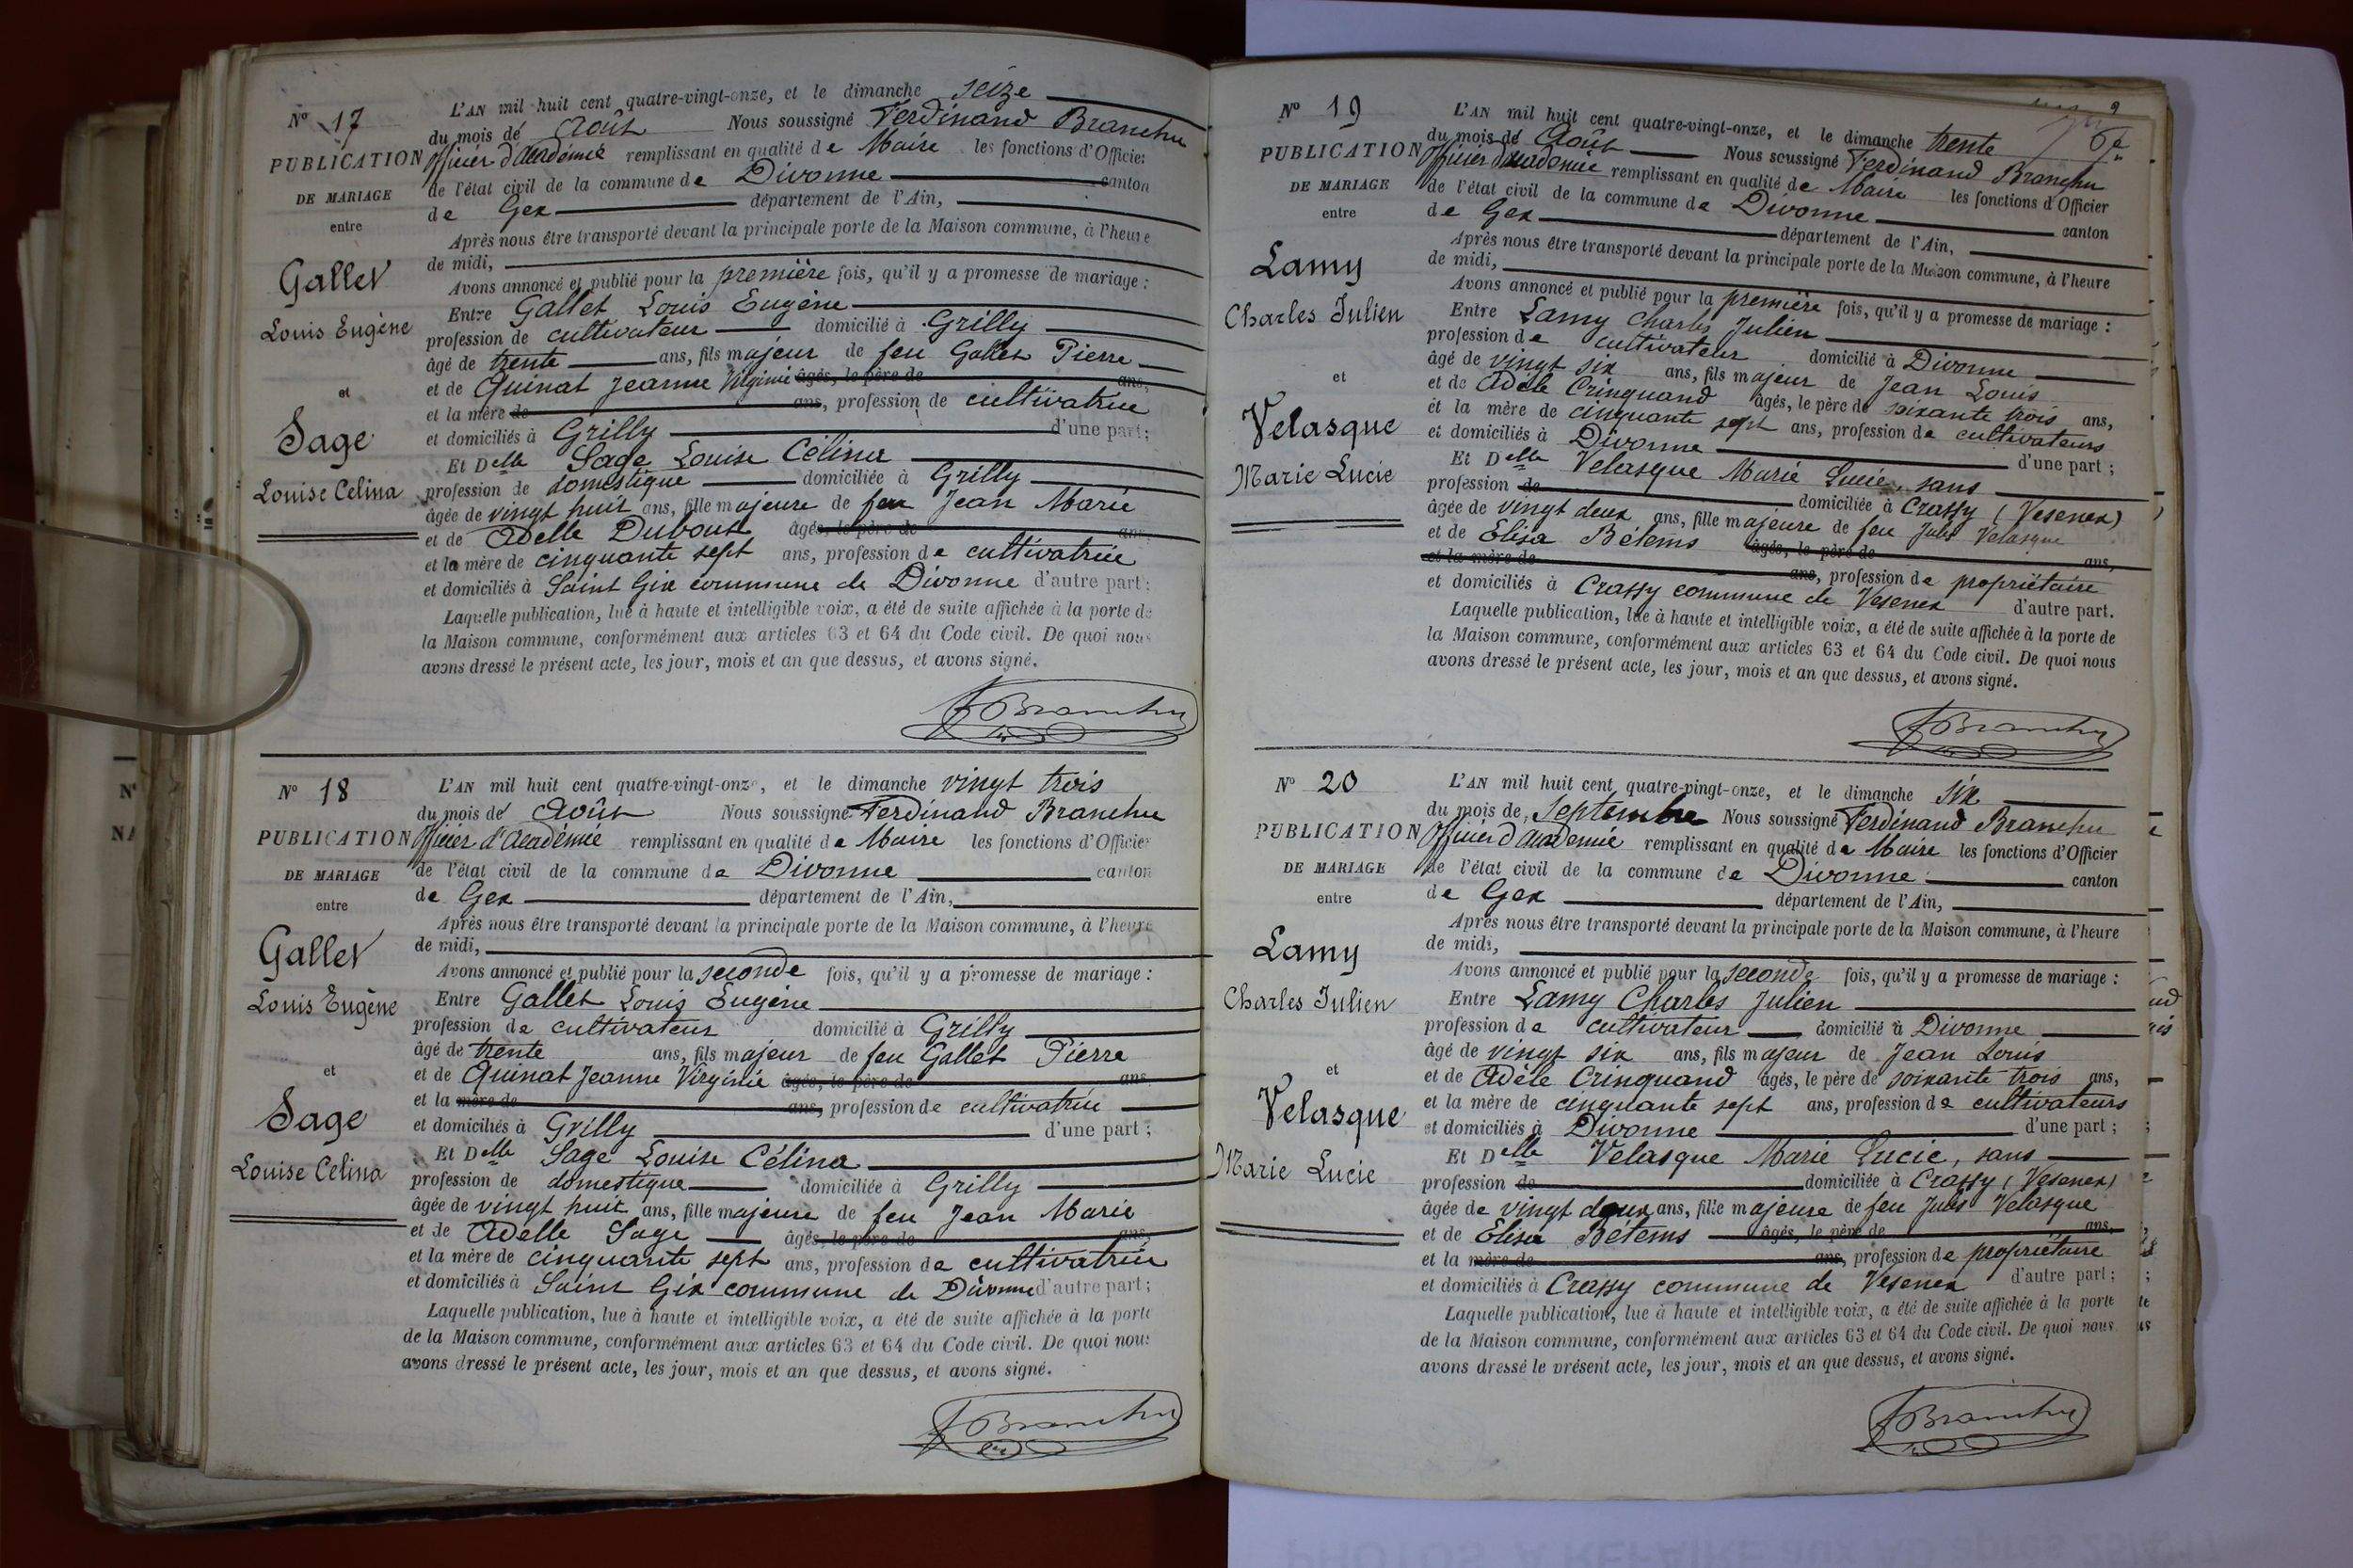 Nº 17
PUBLICATION
DE MARIAGE
entre
Gallet
Louis Eugène
et
Sage
Louise Célina
L'AN mil huit cent quatre-vingt-onze, et le dimanche seize
du mois de Août Nous soussigné Ferdinand Branchu
officier d'académie remplissant en qualité de Maire les fonctions d'Officier
de l'état civil de la commune de Divonne canton
de Gex département de l'Ain,
Après nous être transporté devant la principale porte de la Maison commune, à l'heure
de midi,
Avons annoncé et publié pour la première fois, qu'il y a promesse de mariage :
Entre Gallet Louis Eugène
profession de cultivateur domicilié à Grilly
âgé de trente ans, fils majeur de feu Gallet Pierre
et de Quinat Jeanne Virginie âgés, le père de ans,
et la mère de ans, profession de cultivatrice
et domiciliés à Grilly d'une part;
Et Delle Sage Louise Célina
profession de domestique domiciliée à Grilly
âgée de vingt huit ans, fille majeure de feu Jean Marie
et de Adelle Dubout âgés, le père de ans,
et la mère de cinquante sept ans, profession de cultivatrice
et domiciliés à Saint Gix commune de Divonne d'autre part;
Laquelle publication, lue à haute et intelligible voix, a été de suite affichée à la porte de
la Maison commune, conformément aux articles 63 et 64 du Code civil. De quoi nous
avons dressé le présent acte, les jour, mois et an que dessus, et avons signé.
F Branchu
Nº 18
PUBLICATION
DE MARIAGE
entre
Gallet
Louis Eugène
et
Sage
Louise Célina
L'AN mil huit cent quatre-vingt-onze, et le dimanche vingt trois
du mois de Août Nous soussigné Ferdinand Branchu
officier d'académie remplissant en qualité de Maire les fonctions d'Officier
de l'état civil de la commune de Divonne canton
de Gex département de l'Ain,
Après nous être transporté devant la principale porte de la Maison commune, à l'heure
de midi,
Avons annoncé et publié pour la seconde fois, qu'il y a promesse de mariage :
Entre Gallet Louis Eugène
profession de cultivateur domicilié à Grilly
âgé de trente ans, fils majeur de feu Gallet Pierre
et de Quinat Jeanne Virginie âgés, le père de ans
et la mère de ans, profession de cultivatrice
et domiciliés à Grilly d'une part;
Et Delle Sage Louise Célina
profession de domestique domiciliée à Grilly
âgée de vingt huit ans, fille majeure de feu Jean Marie
et de Adelle Sage âgés, le père de ans,
et la mère de cinquante sept ans, profession de cultivatrice
et domiciliés à Saint Gix commune de Divonne d'autre part;
Laquelle publication, lue à haute et intelligible voix, a été de suite affichée à la porte
de la Maison commune, conformément aux articles 63 et 64 du Code civil. De quoi nous
avons dressé le présent acte, les jour, mois et an que dessus, et avons signé.
F Branchu
Nº 19
PUBLICATION
DE MARIAGE
entre
Lamy
Charles Julien
et
Velasque
Marie Lucie
L'AN mil huit cent quatre-vingt-onze, et le dimanche trente
du mois de Août Nous soussigné Ferdinand Branchu
officier d'académie remplissant en qualité de Maire les fonctions d'Officier
de l'état civil de la commune de Divonne canton
de Gex département de l'Ain,
Après nous être transporté devant la principale porte de la Maison commune, à l'heure
de midi,
Avons annoncé et publié pour la première fois, qu'il y a promesse de mariage :
Entre Lamy Charles Julien
profession de cultivateur domicilié à Divonne
âgé de vingt six ans, fils majeur de Jean Louis
et de Adèle Crinquand âgés, le père de soixante trois ans,
et la mère de cinquante sept ans, profession de cultivateurs
et domiciliés à Divonne d'une part ;
Et Delle Velasque Marie Lucie, sans
profession de domiciliée à Crassy (Vesenex)
âgée de vingt deux ans, fille majeure de feu Jules Velasque
et de Elisa Bétems âgés, le père de ans,
et la mère de ans, profession de propriétaire
et domiciliés à Crassy commune de Vesenex d'autre part.
Laquelle publication, lue à haute et intelligible voix, a été de suite affichée à la porte de
la Maison commune, conformément aux articles 63 et 64 du Code civil. De quoi nous
avons dressé le présent acte, les jour, mois et an que dessus, et avons signé.
F Branchu
Nº 20
PUBLICATION
DE MARIAGE
entre
Lamy
Charles Julien
et
Velasque
Marie Lucie
L'AN mil huit cent quatre-vingt-onze, et le dimanche six
du mois de Septembre Nous soussigné Ferdinand Branchu
officier d'académie remplissant en qualité de Maire les fonctions d'Officier
de l'état civil de la commune de Divonne canton
de Gex département de l'Ain,
Après nous être transporté devant la principale porte de la Maison commune, à l'heure
de midi,
Avons annoncé et publié pour la seconde fois, qu'il y a promesse de mariage :
Entre Lamy Charles Julien
profession de cultivateur domicilié à Divonne
âgé de vingt six ans, fils majeur de Jean Louis
et de Adèle Crinquand âgés, le père de soixante trois ans,
et la mère de cinquante sept ans, profession de cultivateurs
et domiciliés à Divonne d'une part ;
Et Delle Velasque Marie Lucie, sans
profession de domiciliée à Crassy (Vesenex)
âgée de vingt deux ans, fille majeure de feu Jules Velasque
et de Elisa Bétems âgés, le père de ans,
et la mère de ans, profession de propriétaire
et domiciliés à Crassy commune de Vesenex d'autre part;
Laquelle publication, lue à haute et intelligible voix, a été de suite affichée à la porte
de la Maison commune, conformément aux articles 63 et 64 du Code civil. De quoi nous
avons dressé le présent acte, les jour, mois et an que dessus, et avons signé.
F Branchu